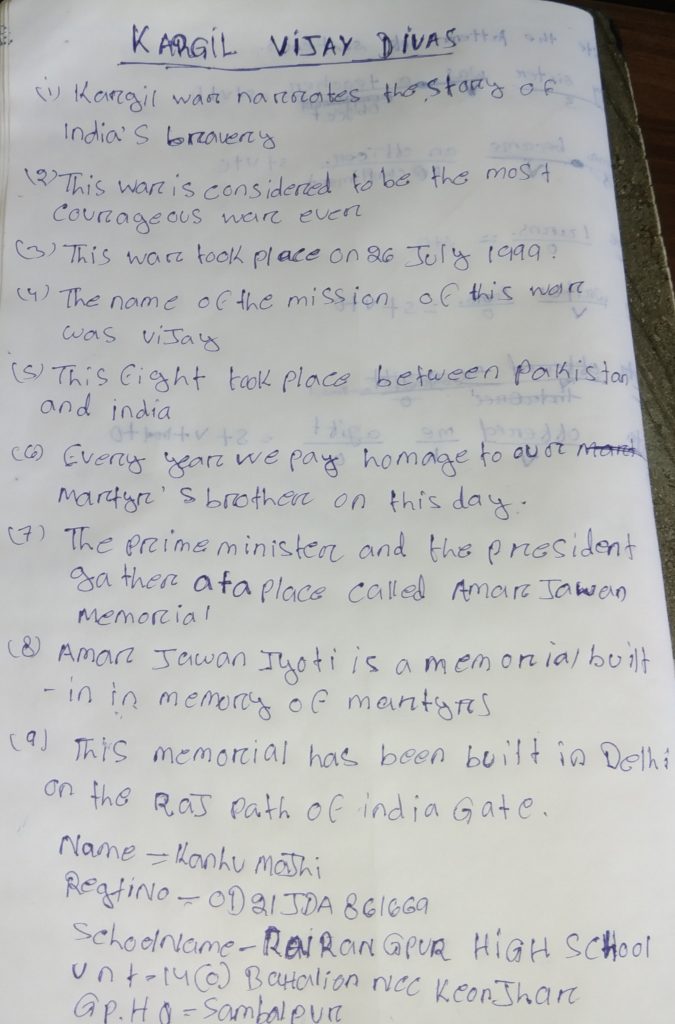 KARGIL VIJAY DIVAS
(1) Kargil war narrates the story of
India's bravery
(2) This war is considered to be the most
courageous war ever
(3) This war took place on 26 July 1999?
(4) The name of the mission of this war
was viJay
(5) This fight took place between Pakistan
and india
(6) Every year we pay homage to our
martyr's brother on this day.
(7) The prime minister and the president
gather at a place called Amar Jawan
Memorial
(8) Amar Jawan Jyoti is a memorial built
-in in memory of martyrs
(9) This memorial has been built in Delhi
on the Raj path of india Gate.
Name = Kanhu Majhi
Regti No - OD21JDA861669
School Name - RAIRANGPUR HIGH SCHOOL
Unt - 14(O) Battalion NCC KeonJhar
Gp. HQ = Sambalpur